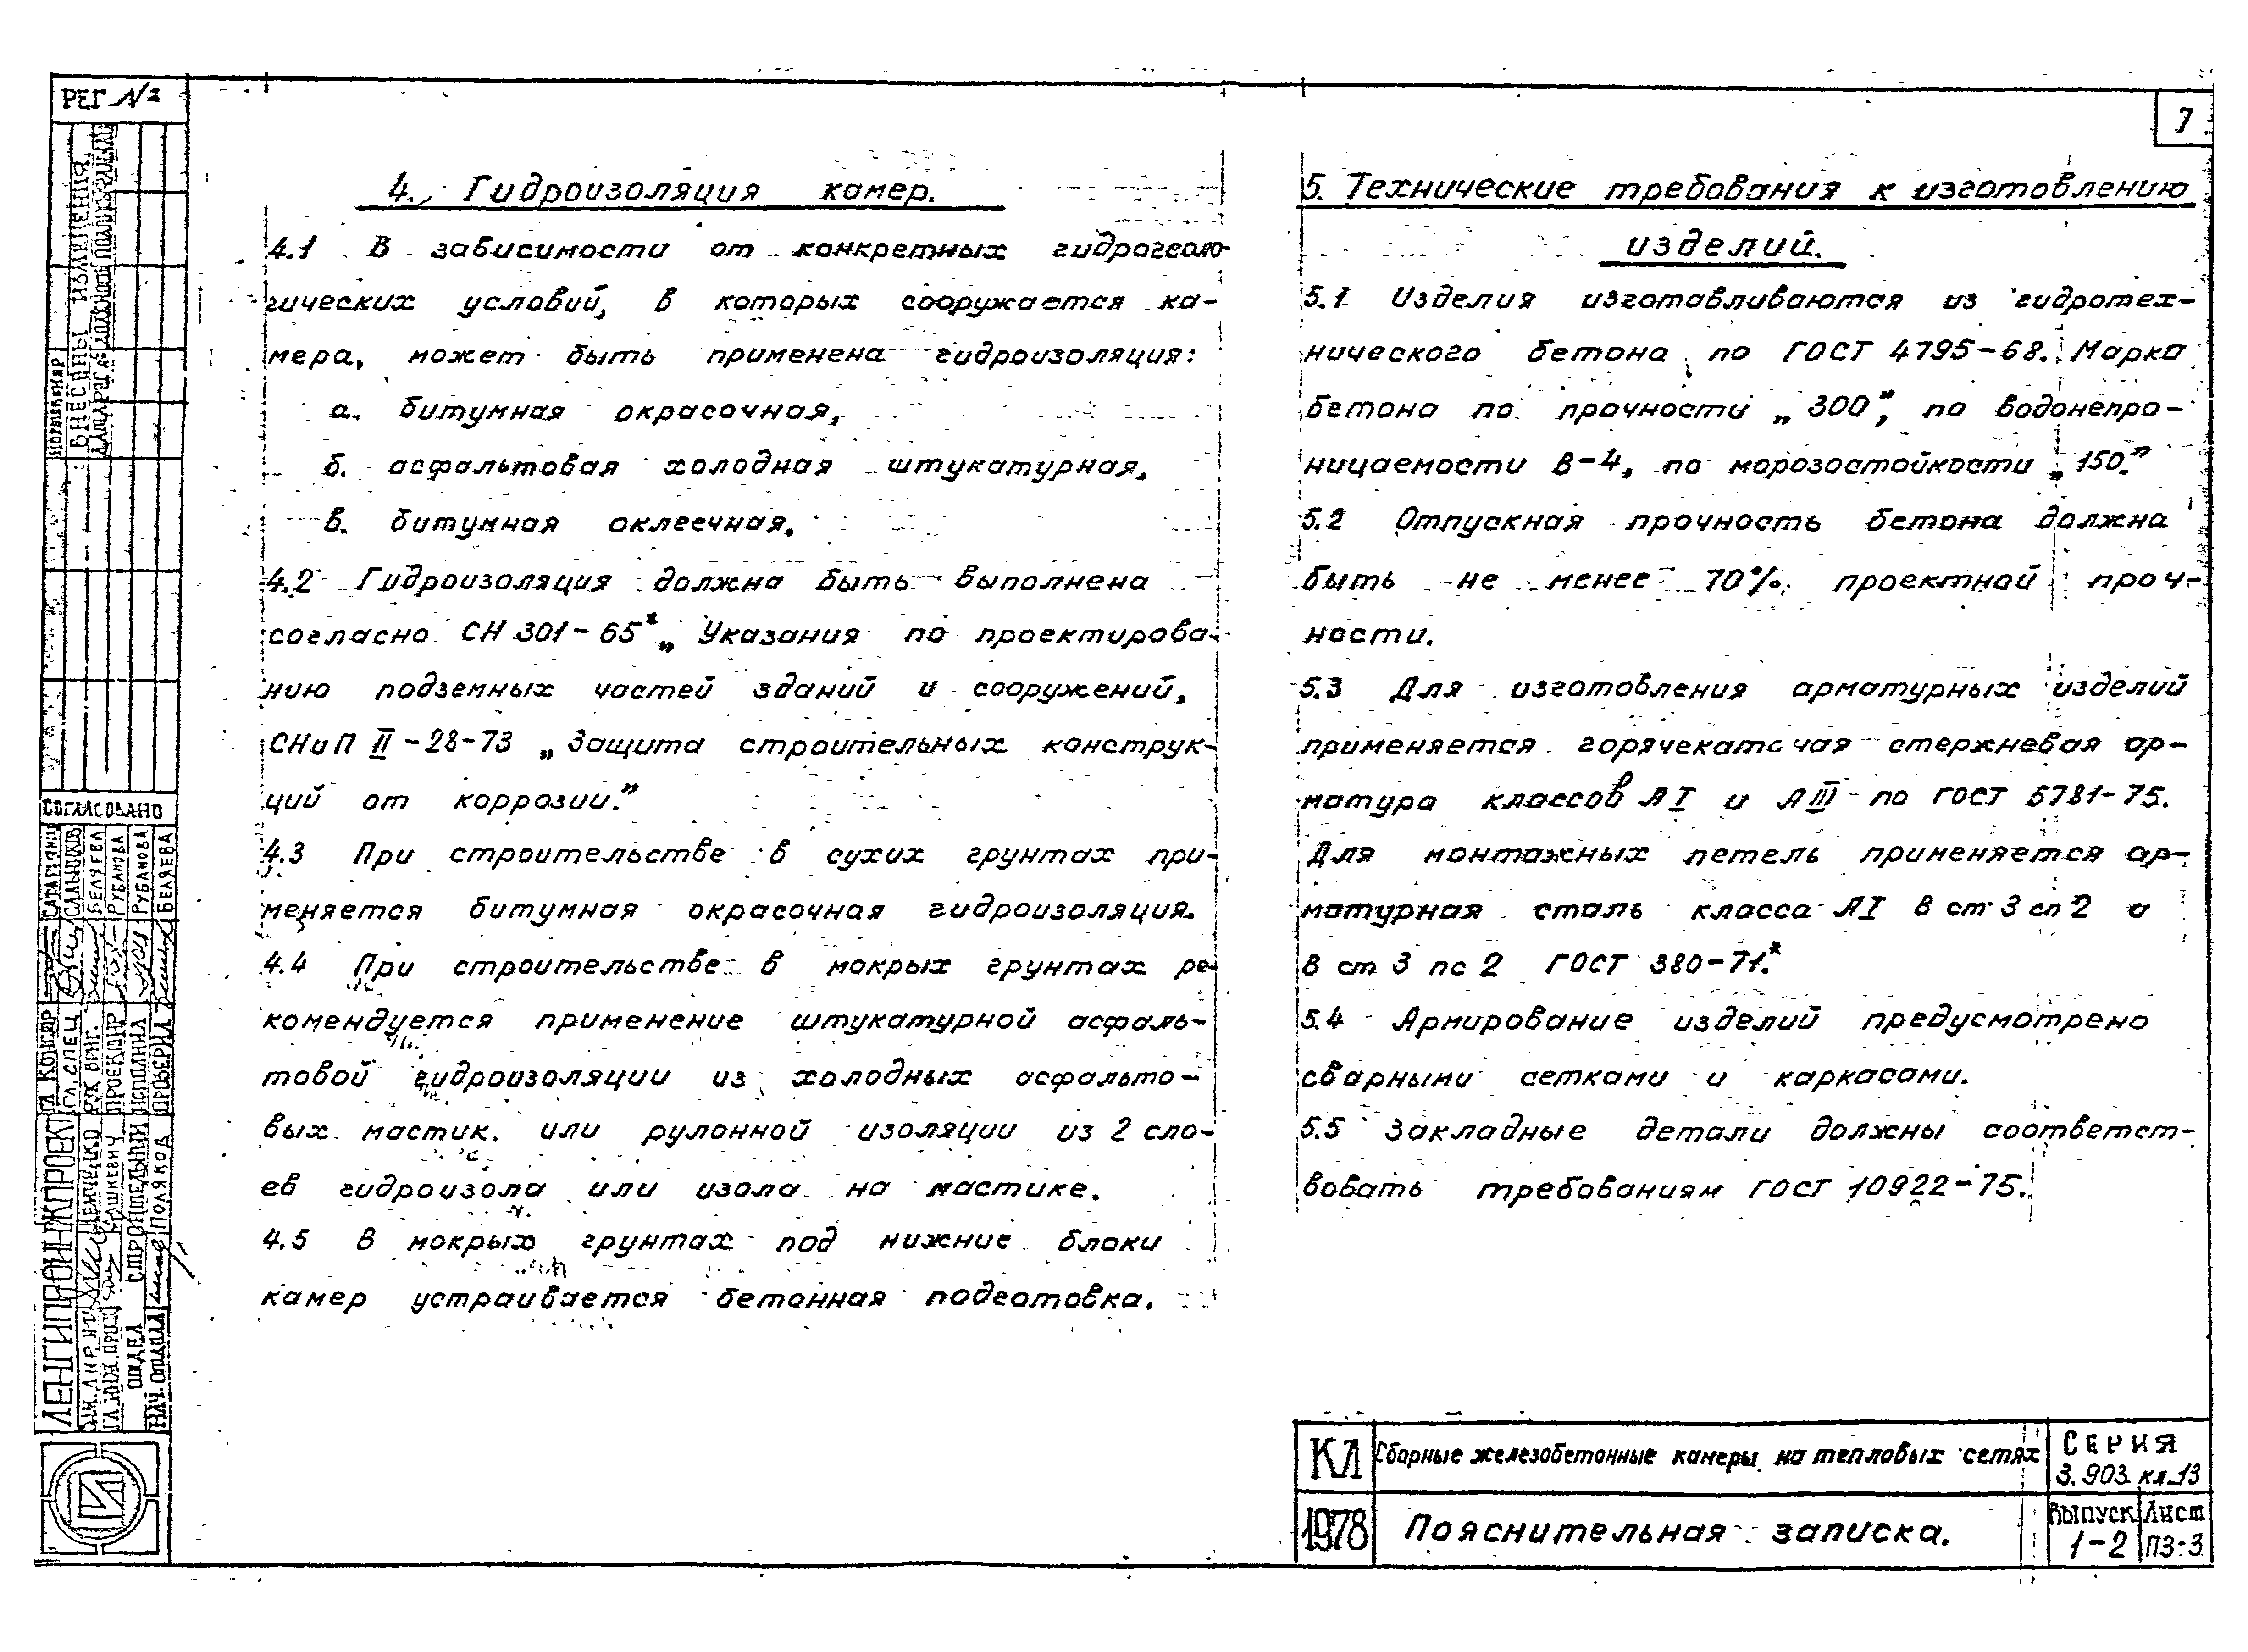 РЕГ №
7
4. Гидроизоляция камер.
4.1 В зависимости от конкретных гидрогеоло-
гических условий, в которых сооружается ка-
мера, может быть применена гидроизоляция:
а. битумная окрасочная,
б. асфальтовая холодная штукатурная,
в. битумная оклеечная.
4.2 Гидроизоляция должна быть выполнена
согласно СН 301-65* „Указания по проектирова-
нию подземных частей зданий и сооружений,
СНиП II-28-73 „Защита строительных конструк-
ций от коррозии."
4.3 При строительстве в сухих грунтах при-
меняется битумная окрасочная гидроизоляция.
4.4 При строительстве в мокрых грунтах ре-
комендуется применение штукатурной асфаль-
товой гидроизоляции из холодных асфальто-
вых мастик. или рулонной изоляции из 2 сло-
ев гидроизола или изола на мастике.
4.5 В мокрых грунтах под нижние блоки
камер устраивается бетонная подготовка.
5. Технические требования к изготовлению
изделий.
5.1 Изделия изготавливаются из гидротех-
нического бетона по ГОСТ 4795-68. Марка
бетона по прочности „300", по водонепро-
ницаемости В-4, по морозостойкости „150."
5.2 Отпускная прочность бетона должна
быть не менее 70% проектной проч-
ности.
5.3 Для изготовления арматурных изделий
применяется горячекатаная стержневая ар-
матура классов АI и АIII по ГОСТ 5781-75.
Для монтажных петель применяется ар-
матурная сталь класса АI В ст 3 сп 2 и
В ст 3 пс 2 ГОСТ 380-71.*
5.4 Армирование изделий предусмотрено
сварными сетками и каркасами.
5.5 Закладные детали должны соответст-
вовать требованиям ГОСТ 10922-75.
ВНЕСЕНЫ ИЗМЕНЕНИЯ
СОГЛАСОВАНО
САЛЬНИКОВ
БЕЛЯЕВА
РУБАНОВА
РУБАНОВА
БЕЛЯЕВА
ГЛ. КОНСТР
ГЛ. СПЕЦ
РУК. БРИГ.
ПРОЕКТИР
ИСПОЛНИЛ
ПРОВЕРИЛ
ЛЕНГИПРОИНЖПРОЕКТ
НЕМЧЕНКО
СТРОИТЕЛЬНЫЙ
ОТДЕЛ
НАЧ. ОТДЕЛА
ПОЛЯКОВ
КЛ
Сборные железобетонные камеры на тепловых сетях
СЕРИЯ
3.903 кл-13
1978
Пояснительная записка.
Выпуск
1-2
Лист
ПЗ-3